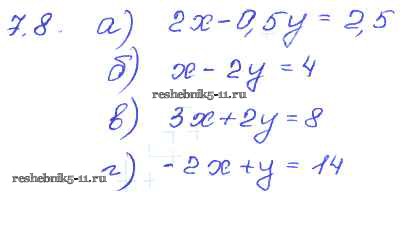 7.8. а) 2x - 0,5y = 2,5
б) x - 2y = 4
reshebnik5-11.ru
в) 3x + 2y = 8
reshebnik5-11.ru
г) -2x + y = 14